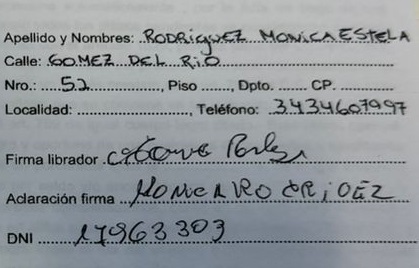 Apellido y Nombres: RODRIGUEZ MONICA ESTELA
Calle: GOMEZ DEL RIO
Nro.: 52, Piso ......, Dpto. ...... CP. ......
Localidad: ......, Teléfono: 3434607997
Firma librador
Aclaración firma
DNI 17963303